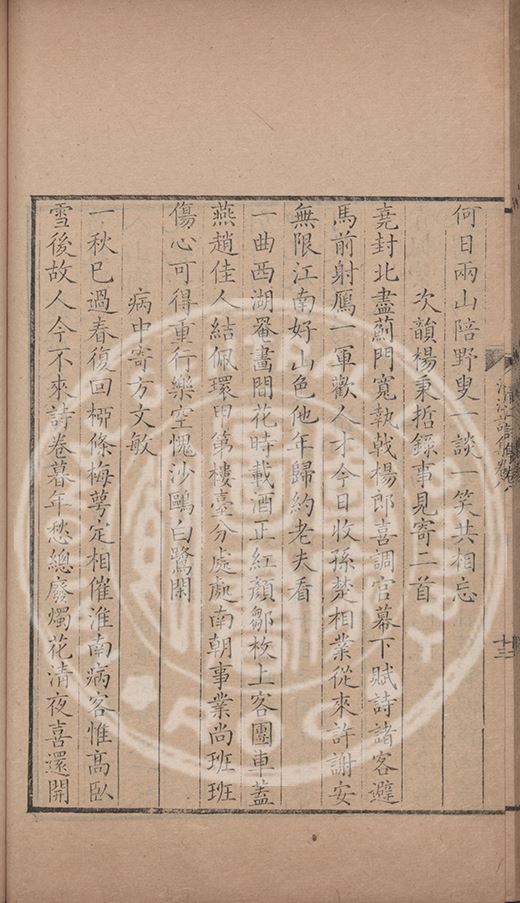 何日兩山陪野叟一談一笑共相忘
次韻楊秉哲錄事見寄二首
堯封北盡薊門寬執戟楊郎喜調官幕下賦詩諸客避
馬前射鴈一軍歡人才今日收孫楚相業從來許謝安
無限江南好山色他年歸約老夫看
一曲西湖罨畫間花時載酒正紅顏鄒枚上客團車蓋
燕趙佳人結佩環甲第樓臺分處處南朝事業尚班班
傷心可得重行樂空愧沙鷗白鷺閑
病中寄方文敏
一秋已過春復回柳條梅萼定相催淮南病客惟高臥
雪後故人今不來詩卷暮年愁總廢燭花清夜喜還開
十三